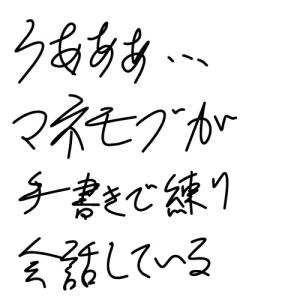 うあああ…
マネモブが
手書きで練り
会話している